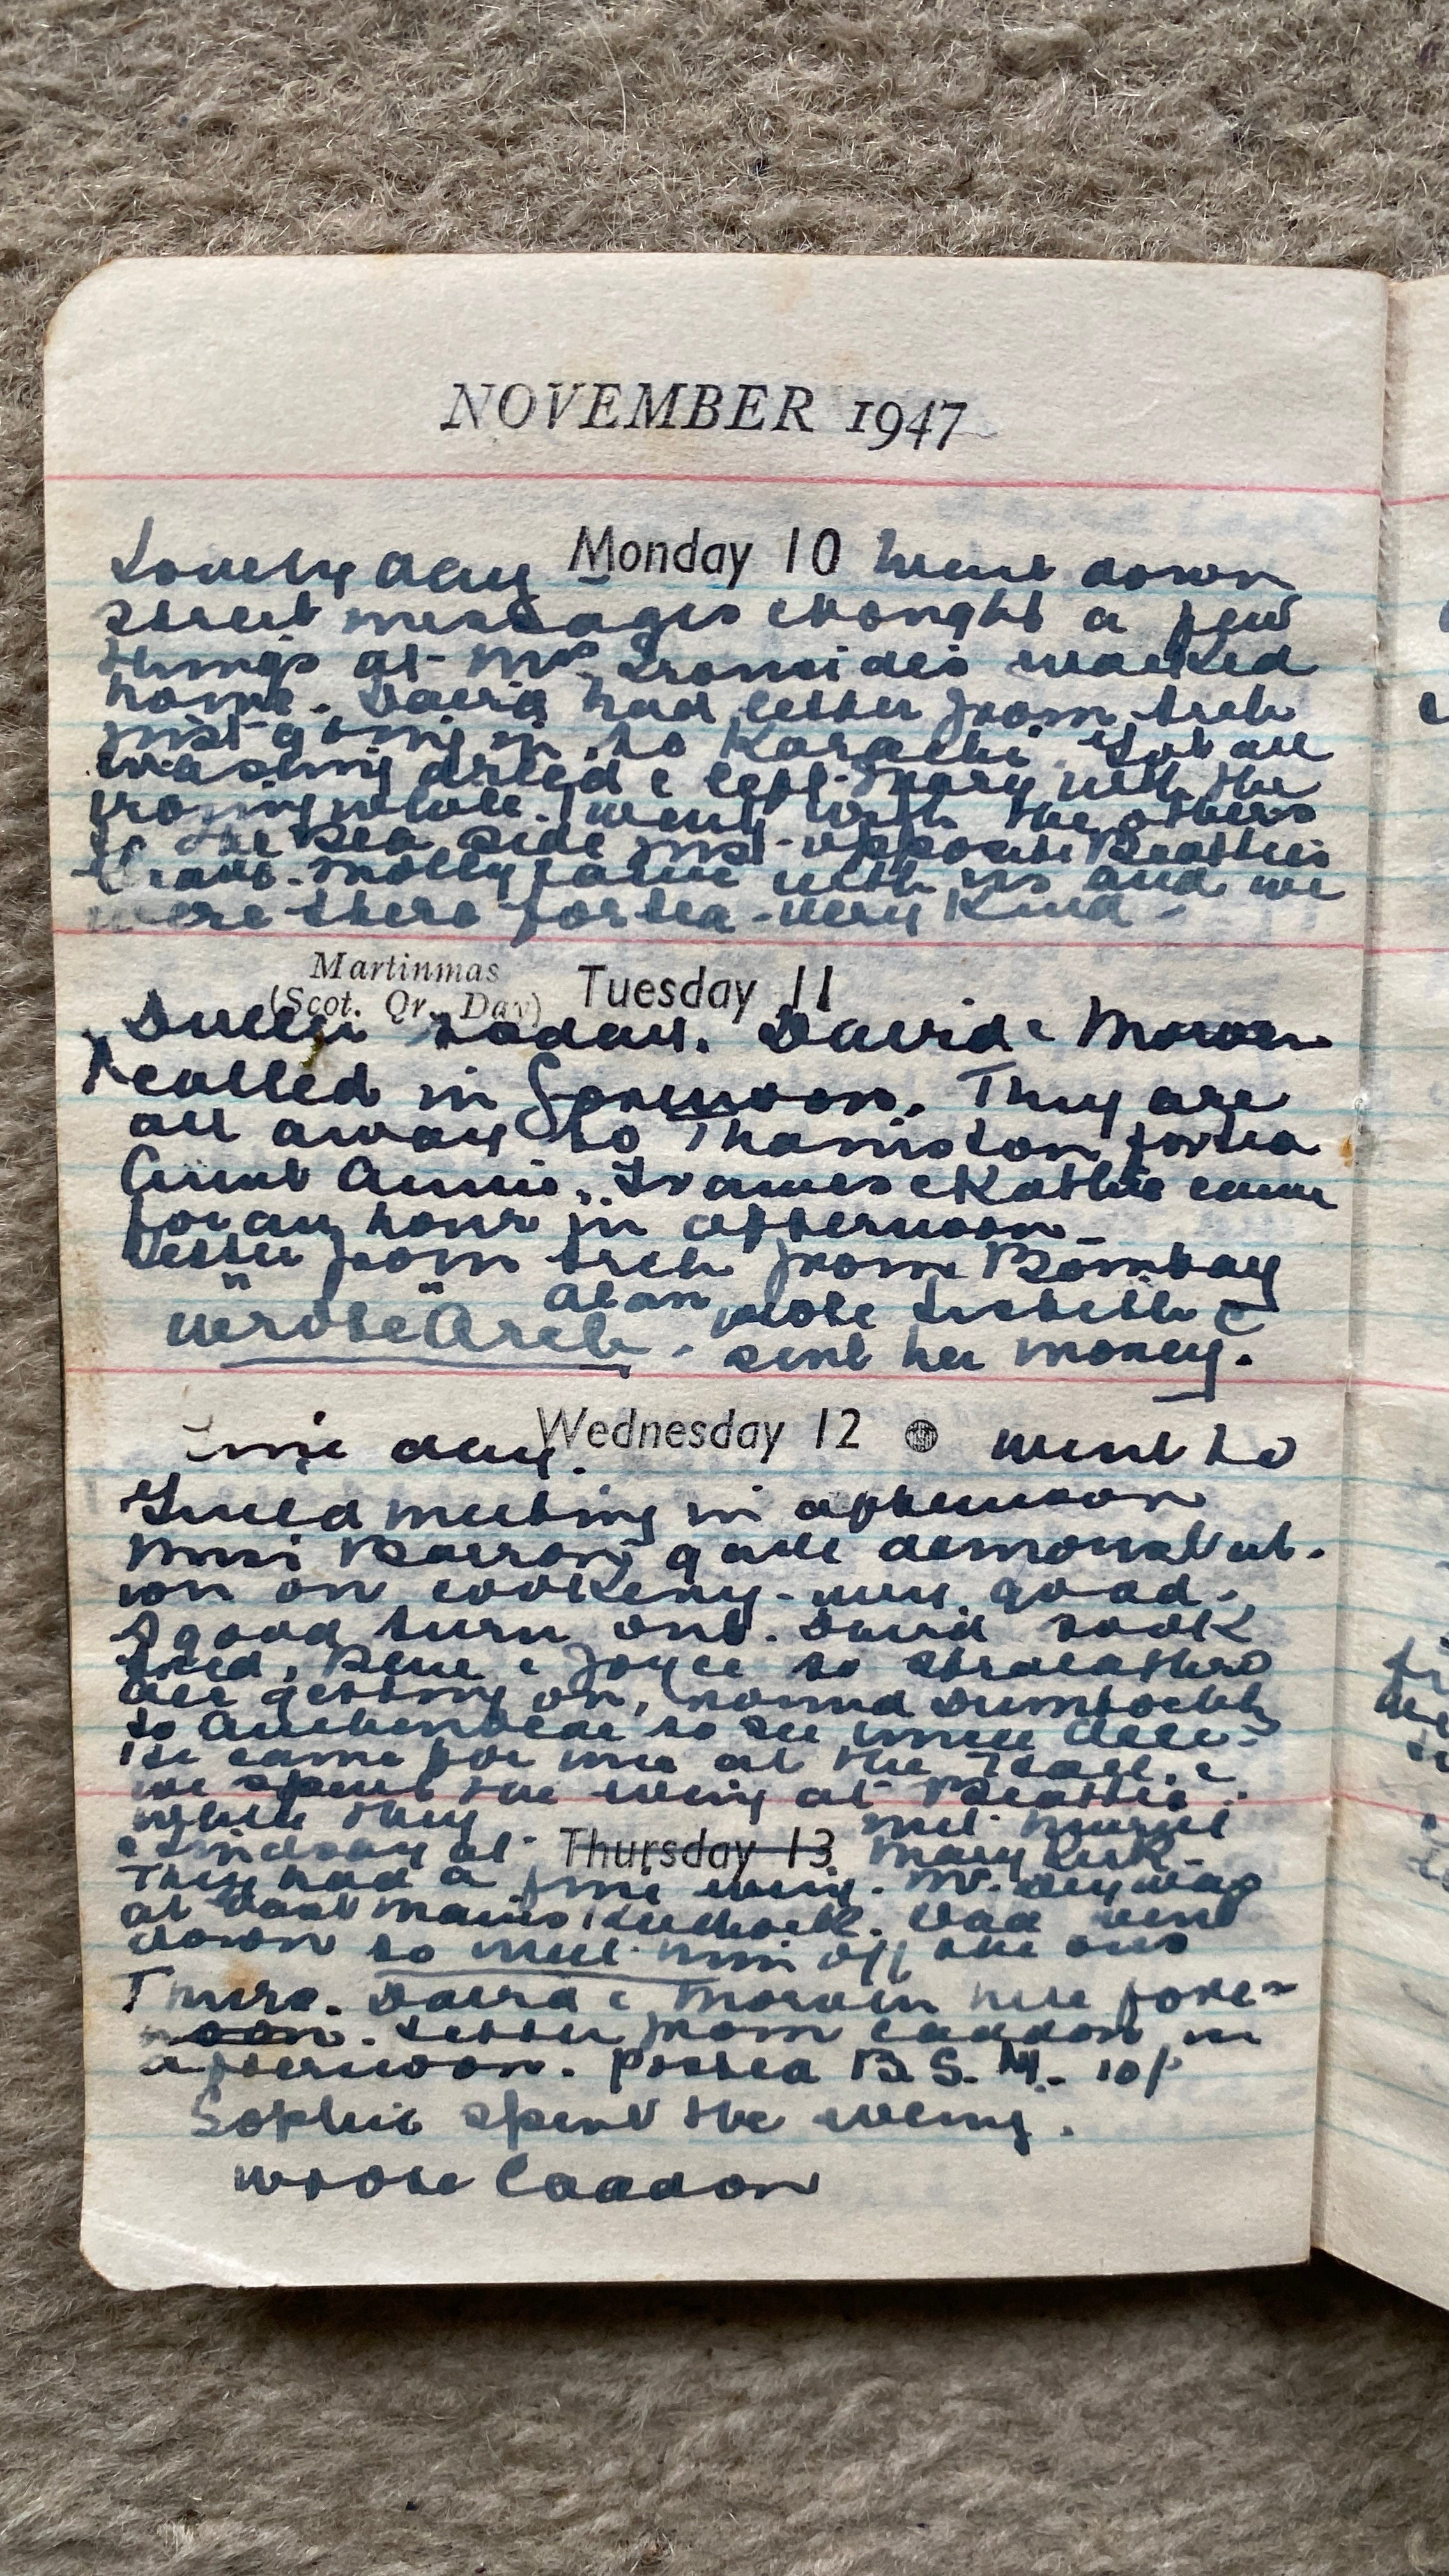 NOVEMBER 1947
Lovely day Monday 10 Went down
street messages & bought a few
things at Mrs Ironsides walked
home. David had letter from Arch
just going in to Karachi. Got all
washing dried & left Mary with the
ironing while I went with the others
to the sea side just opposite Beattie's
Molly came with us and we
were there for tea - very kind -
Martinmas
(Scot. Qr. Day) Tuesday 11
Dull today. David & Morven
called in forenoon. They are
all away to Thainston for tea
Aunt Annie, Frances & Kathie came
for an hour in afternoon -
Letter from Arch from Bombay
" " Alan wrote Lisbeth &
Wrote Arch - sent her money.
Wednesday 12
Fine day. went to
Guild meeting in afternoon
Miss Barron gave demonstrat-
ion on cookery - very good.
A good turn out. David took
Fred, Rene & Joyce to Stracathro
all getting on, round
to to see
He came for me at the Hall, &
we spent the eveing at Beattie's
while they met Muriel
& Lindsay at Thursday 13 Mary Kirk -
They had a fine eveing. Mr. was
at East Mains . Dad went
down to meet him off the bus
Thurs. David & Morven here fore-
noon. Letter from Caddon in
afternoon. Posted B. S. M. 10/-
Sophie spent the eveing.
Wrote Caddon